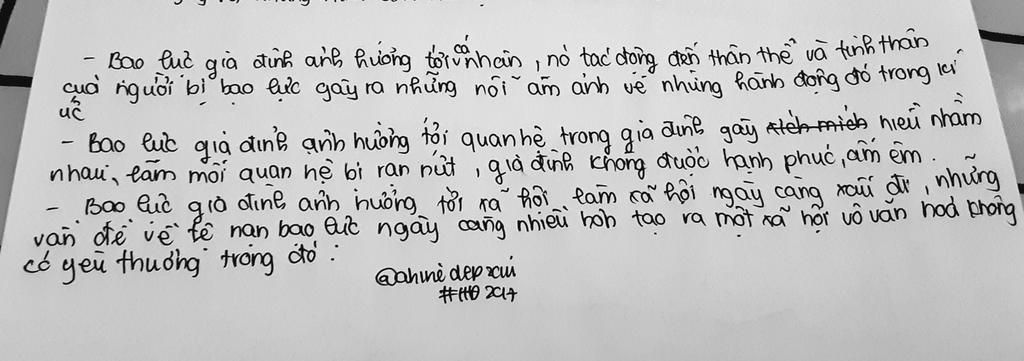 - Bạo lực gia đình ảnh hưởng tới cá nhân, nó tác động đến thân thể và tinh thần
của người bị bạo lực gây ra những nỗi ám ảnh về những hành động đó trong kí
ức
- Bạo lực gia đình ảnh hưởng tới quan hệ trong gia đình gây xích mích hiểu nhầm
nhau, làm mối quan hệ bị rạn nứt, gia đình không được hạnh phúc, ấm êm.
- Bạo lực gia đình ảnh hưởng tới xã hội, làm xã hội ngày càng xấu đi, những
vấn đề về tệ nạn bạo lực ngày càng nhiều hơn tạo ra một xã hội vô văn hoá không
có yêu thương trong đó.